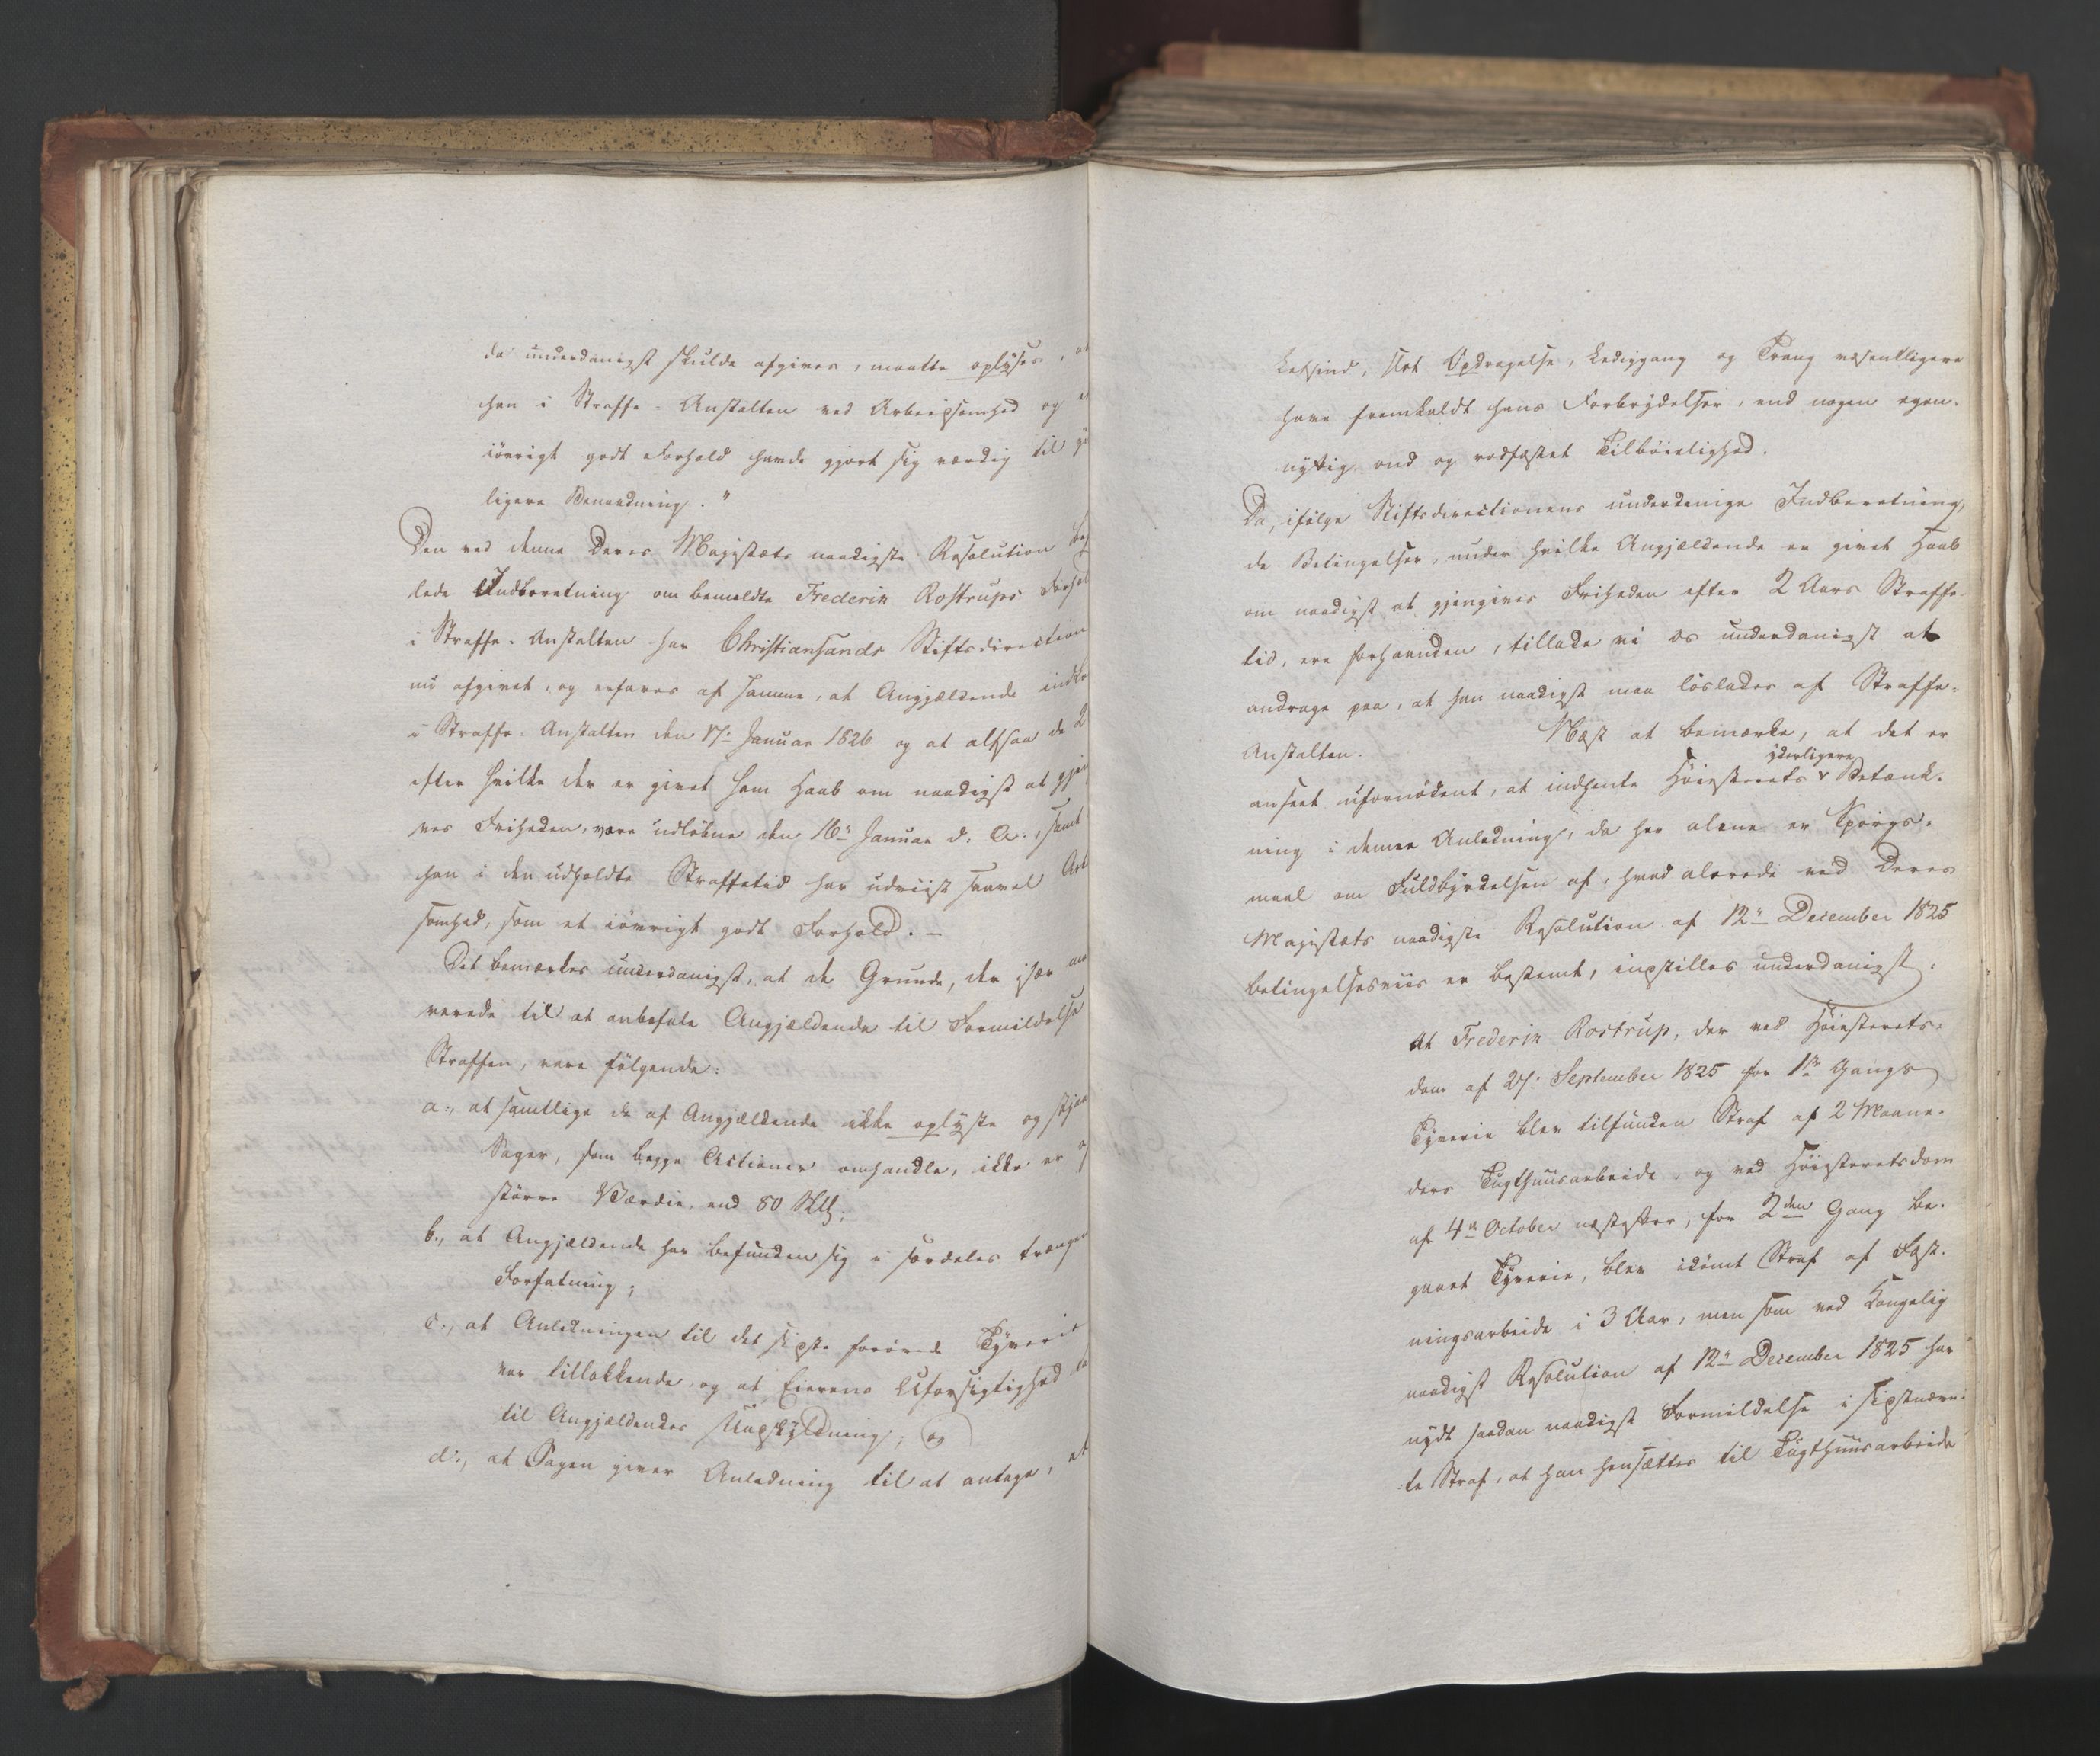 da underdanigst skulde afgives, maatte oplyses, at
han i Straffe-Anstalten ved Arbeidsomhed og et
iövrigt godt Forhold havde gjort sig værdig til
ligere Benaadning."
Den ved denne Deres Majestæts naadigste Resolution
lede Indberetning om bemeldte Frederik Rostrups Forhol
i Straffe-Anstalten har Christiansands Stiftsdirection
nu afgivet, og erfares af samme, at Angjældende indko
i Straffe-Anstalten den 17: Januar 1826 og at altsaa de 2
efter hvilke der er givet ham Haab om naadigst at gjen
ves Friheden, vare udløbne den 16: Januar d: A:, samt
han i den udholdte Straffetid har udviist saavel Arb
somhed, som et iövrigt godt Forhold. —
Det bemærkes underdanigst, at de Grunde, der især
verede til at anbefale Angjældende til Formildelse
Straffen, vare fölgende:
a., at samtlige de af Angjældende ikke oplyste og stjaa
Sager, som begge Actioner omhandle, ikke er
større Værdie, end 80
b., at Angjældende har befunden sig i særdeles trængen
Forfatning;
c., at Anledningen til det sidste forövede Tyverie
var tillokkende, og at Eierens Uforsigtighed
til Angjældendes Undskyldning; og
d., at Sagen giver Anledning til at antage, at
Letsind, slet Opdragelse, Lediggang og Trang væsentligere
have fremkaldt hans Forbrydelser, end nogen egen-
nyttig, ond og rodfæstet Tilböielighed.
Da, ifölge Stiftsdirectionens underdanige Indberetning,
de Betingelser, under hvilke Angjældende er givet Haab
om naadigst at gjengives Friheden efter 2 Aars Straffe-
tid, ere forhaanden, tillade vi os underdanigst at
andrage paa, at han naadigst maa löslades af Straffe-
Anstalten. Næst at bemærke, at det er
yderligere
anseet ufornödent, at indhente Höiesterets v Betænk-
ning i denne Anledning, da her alene er Spörgs-
maal om Fuldbyrdelsen af, hvad alerede ved Deres
Majestæts naadigste Resolution af 12: December 1825
betingelsesviis er bestemt, indstilles underdanigst:
At Frederik Rostrup, der ved Höiesterets-
dom af 27: September 1825 for 1ste Gangs
Tyverie blev tilfunden Straf af 2 Maane-
ders Tugthuusarbeide, og ved Höiesteretsdom
af 4de October næstefter, for 2den Gang be-
gaaet Tyverie, blev idömt Straf af Fæst-
ningsarbeide i 3 Aar, men som ved Kongelig
naadigst Resolution af 12: December 1825 har
nydt saadan naadigst Formildelse i sidstnævn-
te Straf, at han hensættes til Tugthuusarbeide